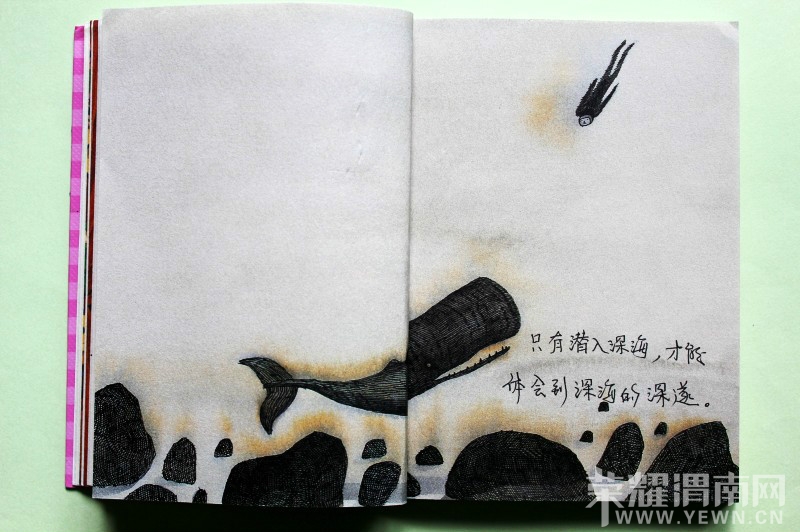 只有潜入深海，才能
体会到深海的深邃。
荣耀渭南网
WWW.YEWN.CN